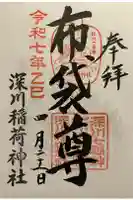 奉拝
布袋尊
令和七年乙巳
四月十三日
深川稲荷神社